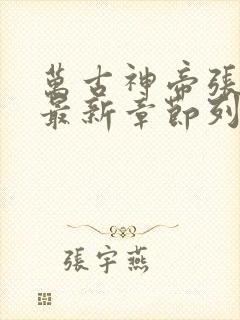 萬古神帝張
最新章節列
張宇燕